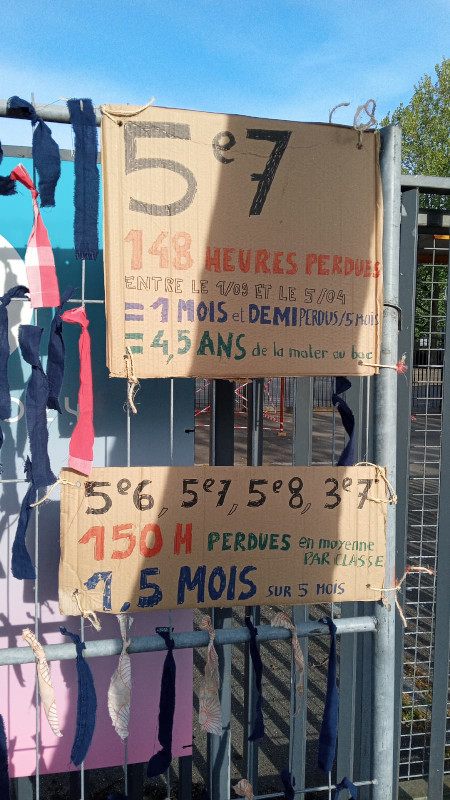 5e7
148 HEURES PERDUES
ENTRE LE 1/09 ET LE 5/04
= 1 MOIS et DEMI PERDUS/5 MOIS
= 4,5 ANS de la mater au bac
5e6, 5e7, 5e8, 3e7
150 H PERDUES en moyenne
PAR CLASSE
1,5 MOIS SUR 5 MOIS